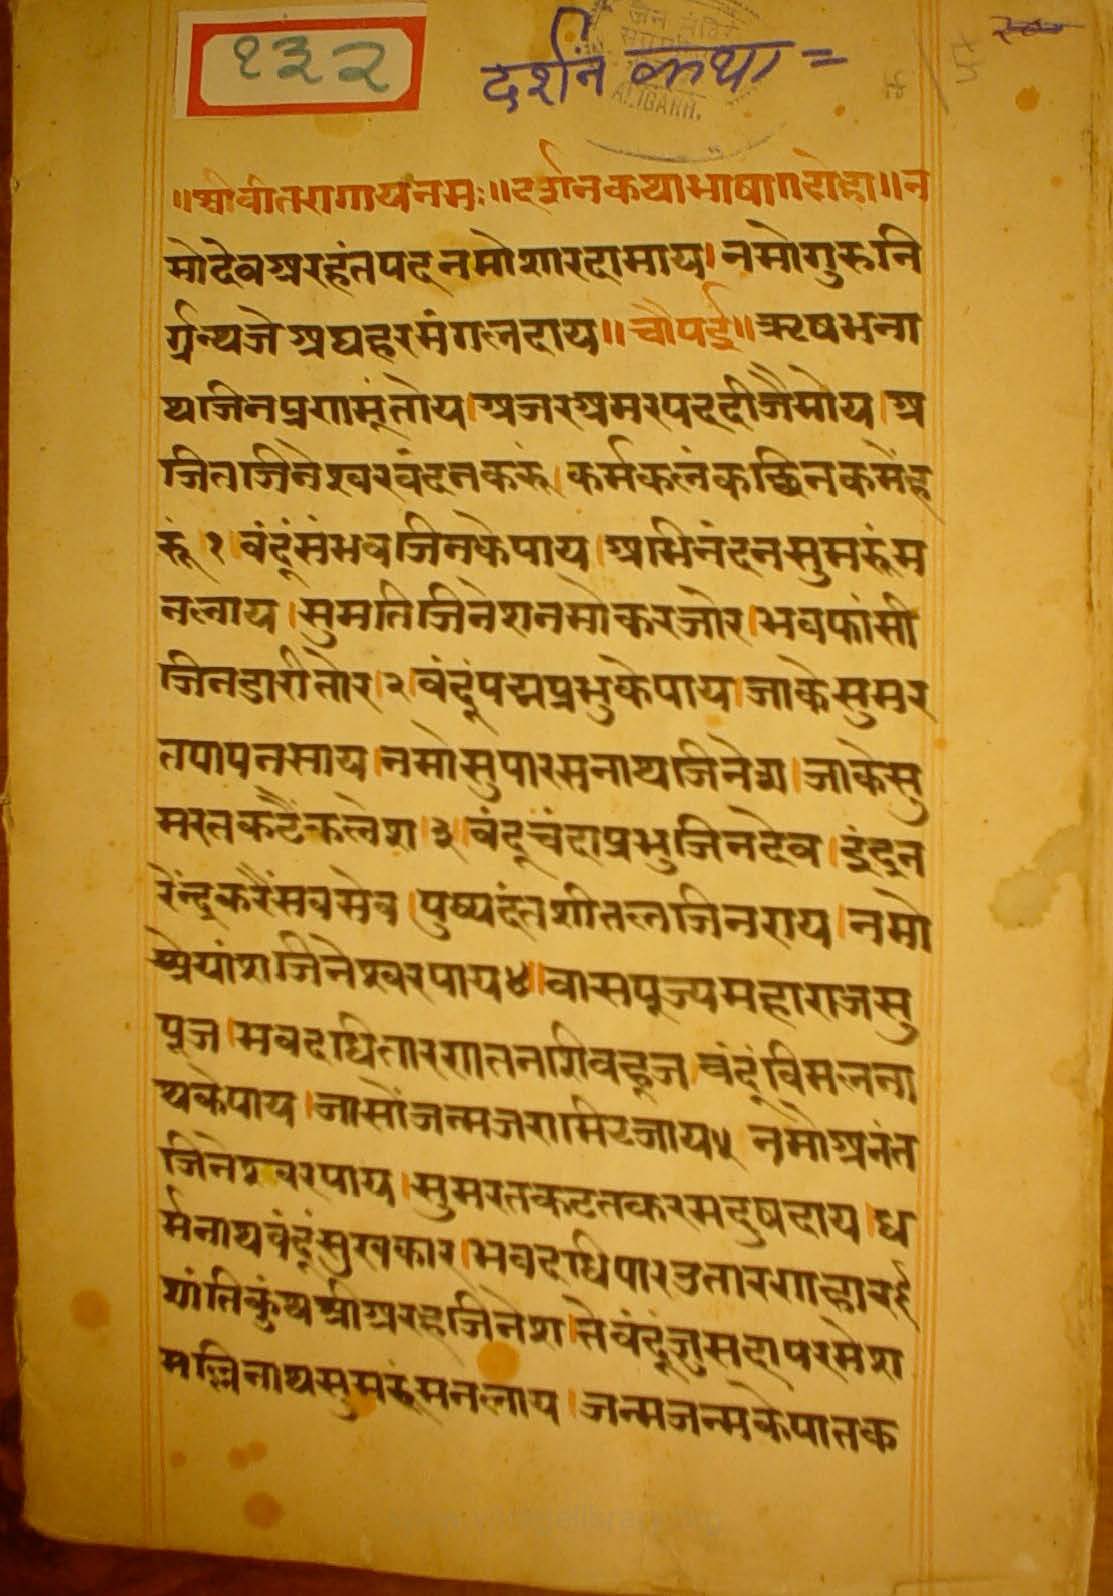 १३२
दर्शन कथा =
जैन मंदिर
ALIGARH.
॥श्रीवीतरागायनमः॥दर्शनकथाभाषा॥दोहा॥न
मोदेवअरहंतपदनमोशारदामाय।नमोगुरुनि
र्ग्रन्थजेअघहरमंगलदाय॥चौपई॥ऋषभना
थजिनप्रणमूंतोय।अजरअमरपददीजैमोय।अ
जितजिनेश्वरवंदनकरुं।कर्मकलंकछिनकमेंह
रूं।१।वंदूंसंभवजिनकेपाय।अभिनंदनसुमरुंम
नलाय।सुमतिजिनेशनमोकरजोर।भवफांसी
जिनडारीतोर।२।वंदूंपद्मप्रभुकेपाय।जाकेसुमर
तपापनसाय।नमोसुपारसनाथजिनेश।जाकेसु
मरतकटैंकलेश।३।वंदूचंदाप्रभुजिनदेव।इंद्रन
रेंन्द्रकरैंसबसेव।पुष्पदंतशीतलजिनराय।नमो
श्रेयांशजिनेश्वरपाय४॥वासपूज्यमहाराजसु
पूज।भवदधितारणतनशिवहूज।वंदूंविमलना
थकेपाय।जासोंजन्मजरामिटजाय५नमोअनंत
जिनेश्वरपाय।सुमरतकटतकरमदुषदाय।ध
र्मनाथवंदूंसुखकार।भवदधिपारउतारणहार६
शांतिकुंथश्रीअरहजिनेश।तेवंदूंजुसदापरमेश
मल्लिनाथसुमरूंमनलाय।जन्मजन्मकेपातक